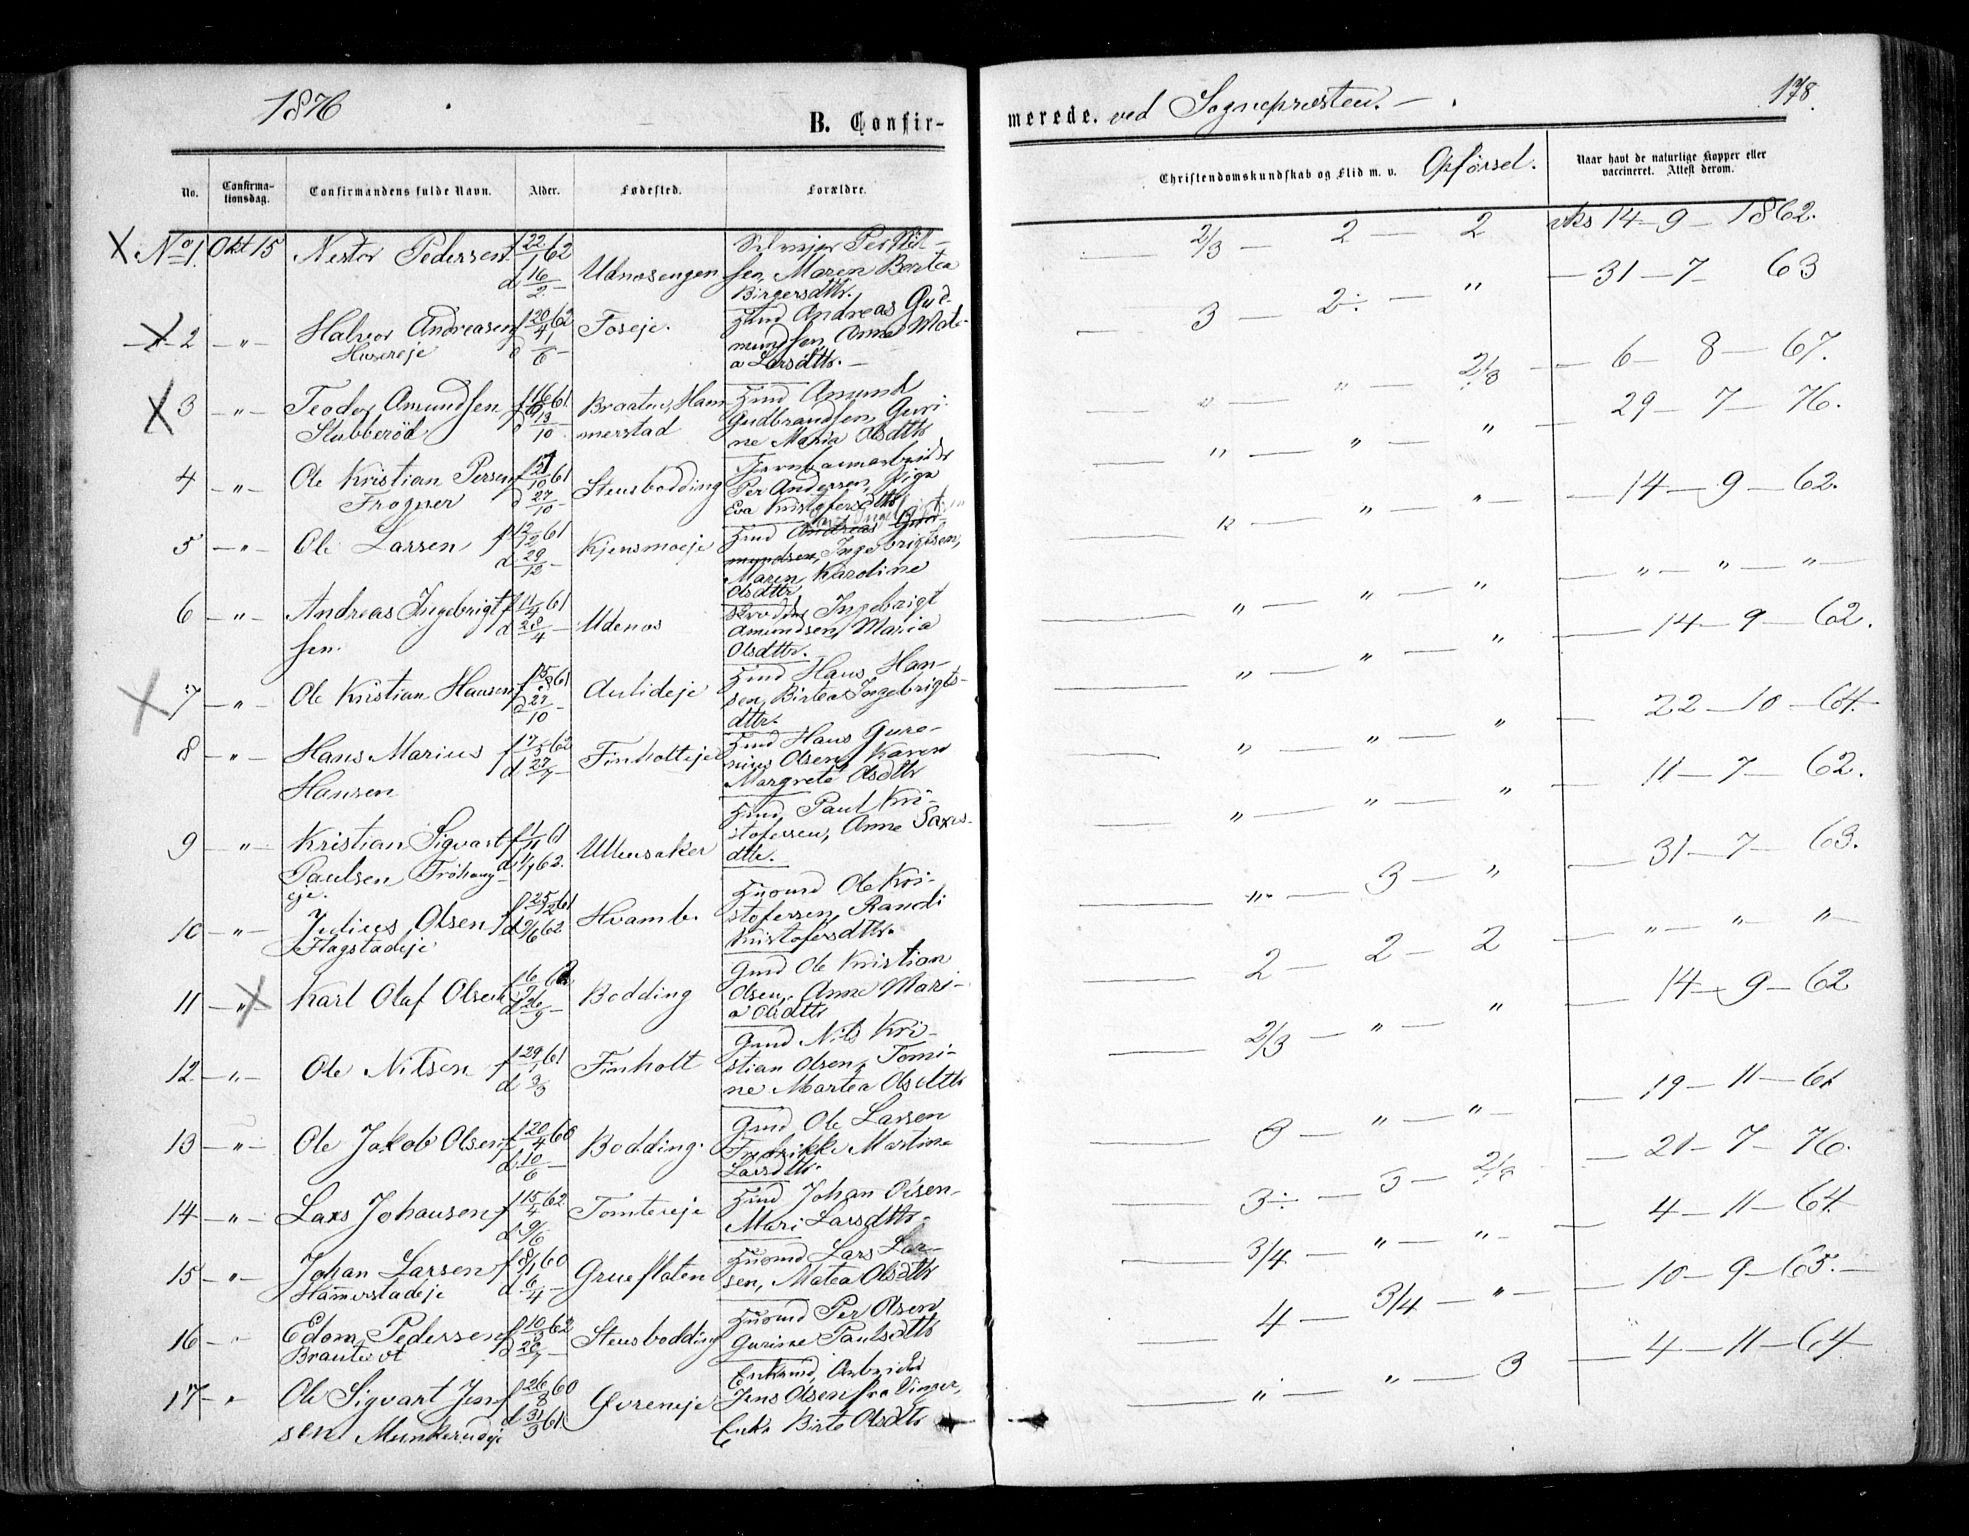 1876
B. Confir-
merede. ved Sognepræsten. —
178.
No.
Confirma-
tionsdag.
Confirmandens fulde Navn.
Alder.
Fødested.
Forældre.
Christendomskundskab og Flid m. v. Opførsel.
Naar havt de naturlige Kopper eller
vaccineret. Attest derom.
X No 1. Okt 15 Nestor Pedersen f 22/1 62 d 16/2 — Udnæsengen
Selvejer Per Nil-
sen, Maren Bertea
Birgersdttr.
2/3 — 2 — 2 vks 14 — 9 — 1862.
X 2 — " — Halvor Andreasen f 20/4 62
Husereje
Foseje.
Hmd Andreas Gud-
mundsen, Anne Mate-
a Larsdttr. —
3 — 2÷ — " — 31 — 7 63
X 3 — " — Teodor Amundsen
Stubberød
Braaten, Ham
merstad
Hmd Amund
Gudbrandsen, Guri-
ne Maria Olsdttr
" — " — 2/3 — 6 — 8 — 67.
4 — " — Ole Kristian Persen
Frogner
Stensbodding
Jernbanearbeider
Per Andersen, Pige
Eva Kristofersdttr
" — " — " — 29 — 7 — 76.
5 — " — Ole Larsen f 12/12 61 d 29/12 — Kjensmoeje
Hmd Andreas Gud-
mundsen, Ingebrigtsen,
Maren Karoline
Olsdttr
" — " — " — 14 — 9 — 62.
6 " Andreas Ingebrigt
sen.
f 11/4 61 d 28/4 — Udenæs
Ingebrigt
Amundsen, Maria
Olsdttr.
" — " — " — " — " — "
X 7 — " — Ole Kristian Hansen
Aulideje
Hmd Hans Han-
sen, Birtea Ingebrigts-
dttr.
" — " — " — 14 — 9 — 62.
8 — " — Hans Marius
Hansen
f 7/5 62 d 27/7 — Finholteje
Hmd Hans Gure-
nius Olsen, Karen
Margrete Olsdttr
" — " — " — 22 — 10 — 64.
9 " Kristian Sigvart
Paulsen Fröhaug-
eje.
Ullensaker
Hmd, Paul Kri-
stofersen, Anne Saxes-
dttr.
" — " — " — 11 — 7 — 62.
10 — " — Julius Olsen
Flagstadeje
f 25/12 61 d 9/6 62. Hvamb.
Husmd Ole Kri-
stofersen, Randi
Kristofersdttr.
" — 3 — " — 31 — 7 — 63.
11 — " X Karl Olaf Olsen
Bodding
Gmd Ole Kristian
Olsen, Anne Mari-
a Olsdttr
2 — 2 — 2 — " — " — "
12 — " — Ole Nilsen f 29/1 61 d 3/3 Finholt
Gmd Nils Kri-
stian Olsen, Tomi-
ne Martea Olsdttr
2/3 — " — " — 14 — 9 — 62
13 — " — Ole Jakob Olsen f 20/4 60 d 10/6 — Bodding.
Gmd Ole Larsen
Fredrikke Martine
Larsdttr.
3 — " — " — 19 — 11 — 61
14 — " — Lars Johansen f 15/4 62. d 9/6 Tomtereje
Hmd Johan Olsen-
Mari Larsdttr.
3÷ — 3 — 2/3 — 21 — 7 — 76.
15 — " — Johan Larsen
Hamerstadeje
f 8/1 60 d 6/4 — Grueflaten
Husmd Lars Lar-
sen, Matea Olsdttr
3/4 — " — " — 4 — 11 — 64
16 " Edom Pedersen
Brautevt
f 10/3 62 Stensbodding
Husmd Per Olsen
Gurine Paulsdttr
4 — 3/4 — " — 10 — 9 — 65. —
17 — " Ole Sigvart Jen
sen Munkerudeje
f 26/8 60 d 31/3 61 Øvreneje
Enkemd, Arbeider
Jens Olsen fra Vinger,
Enke Birte Olsdttr
" — " — 3 — 4 — 11 — 64